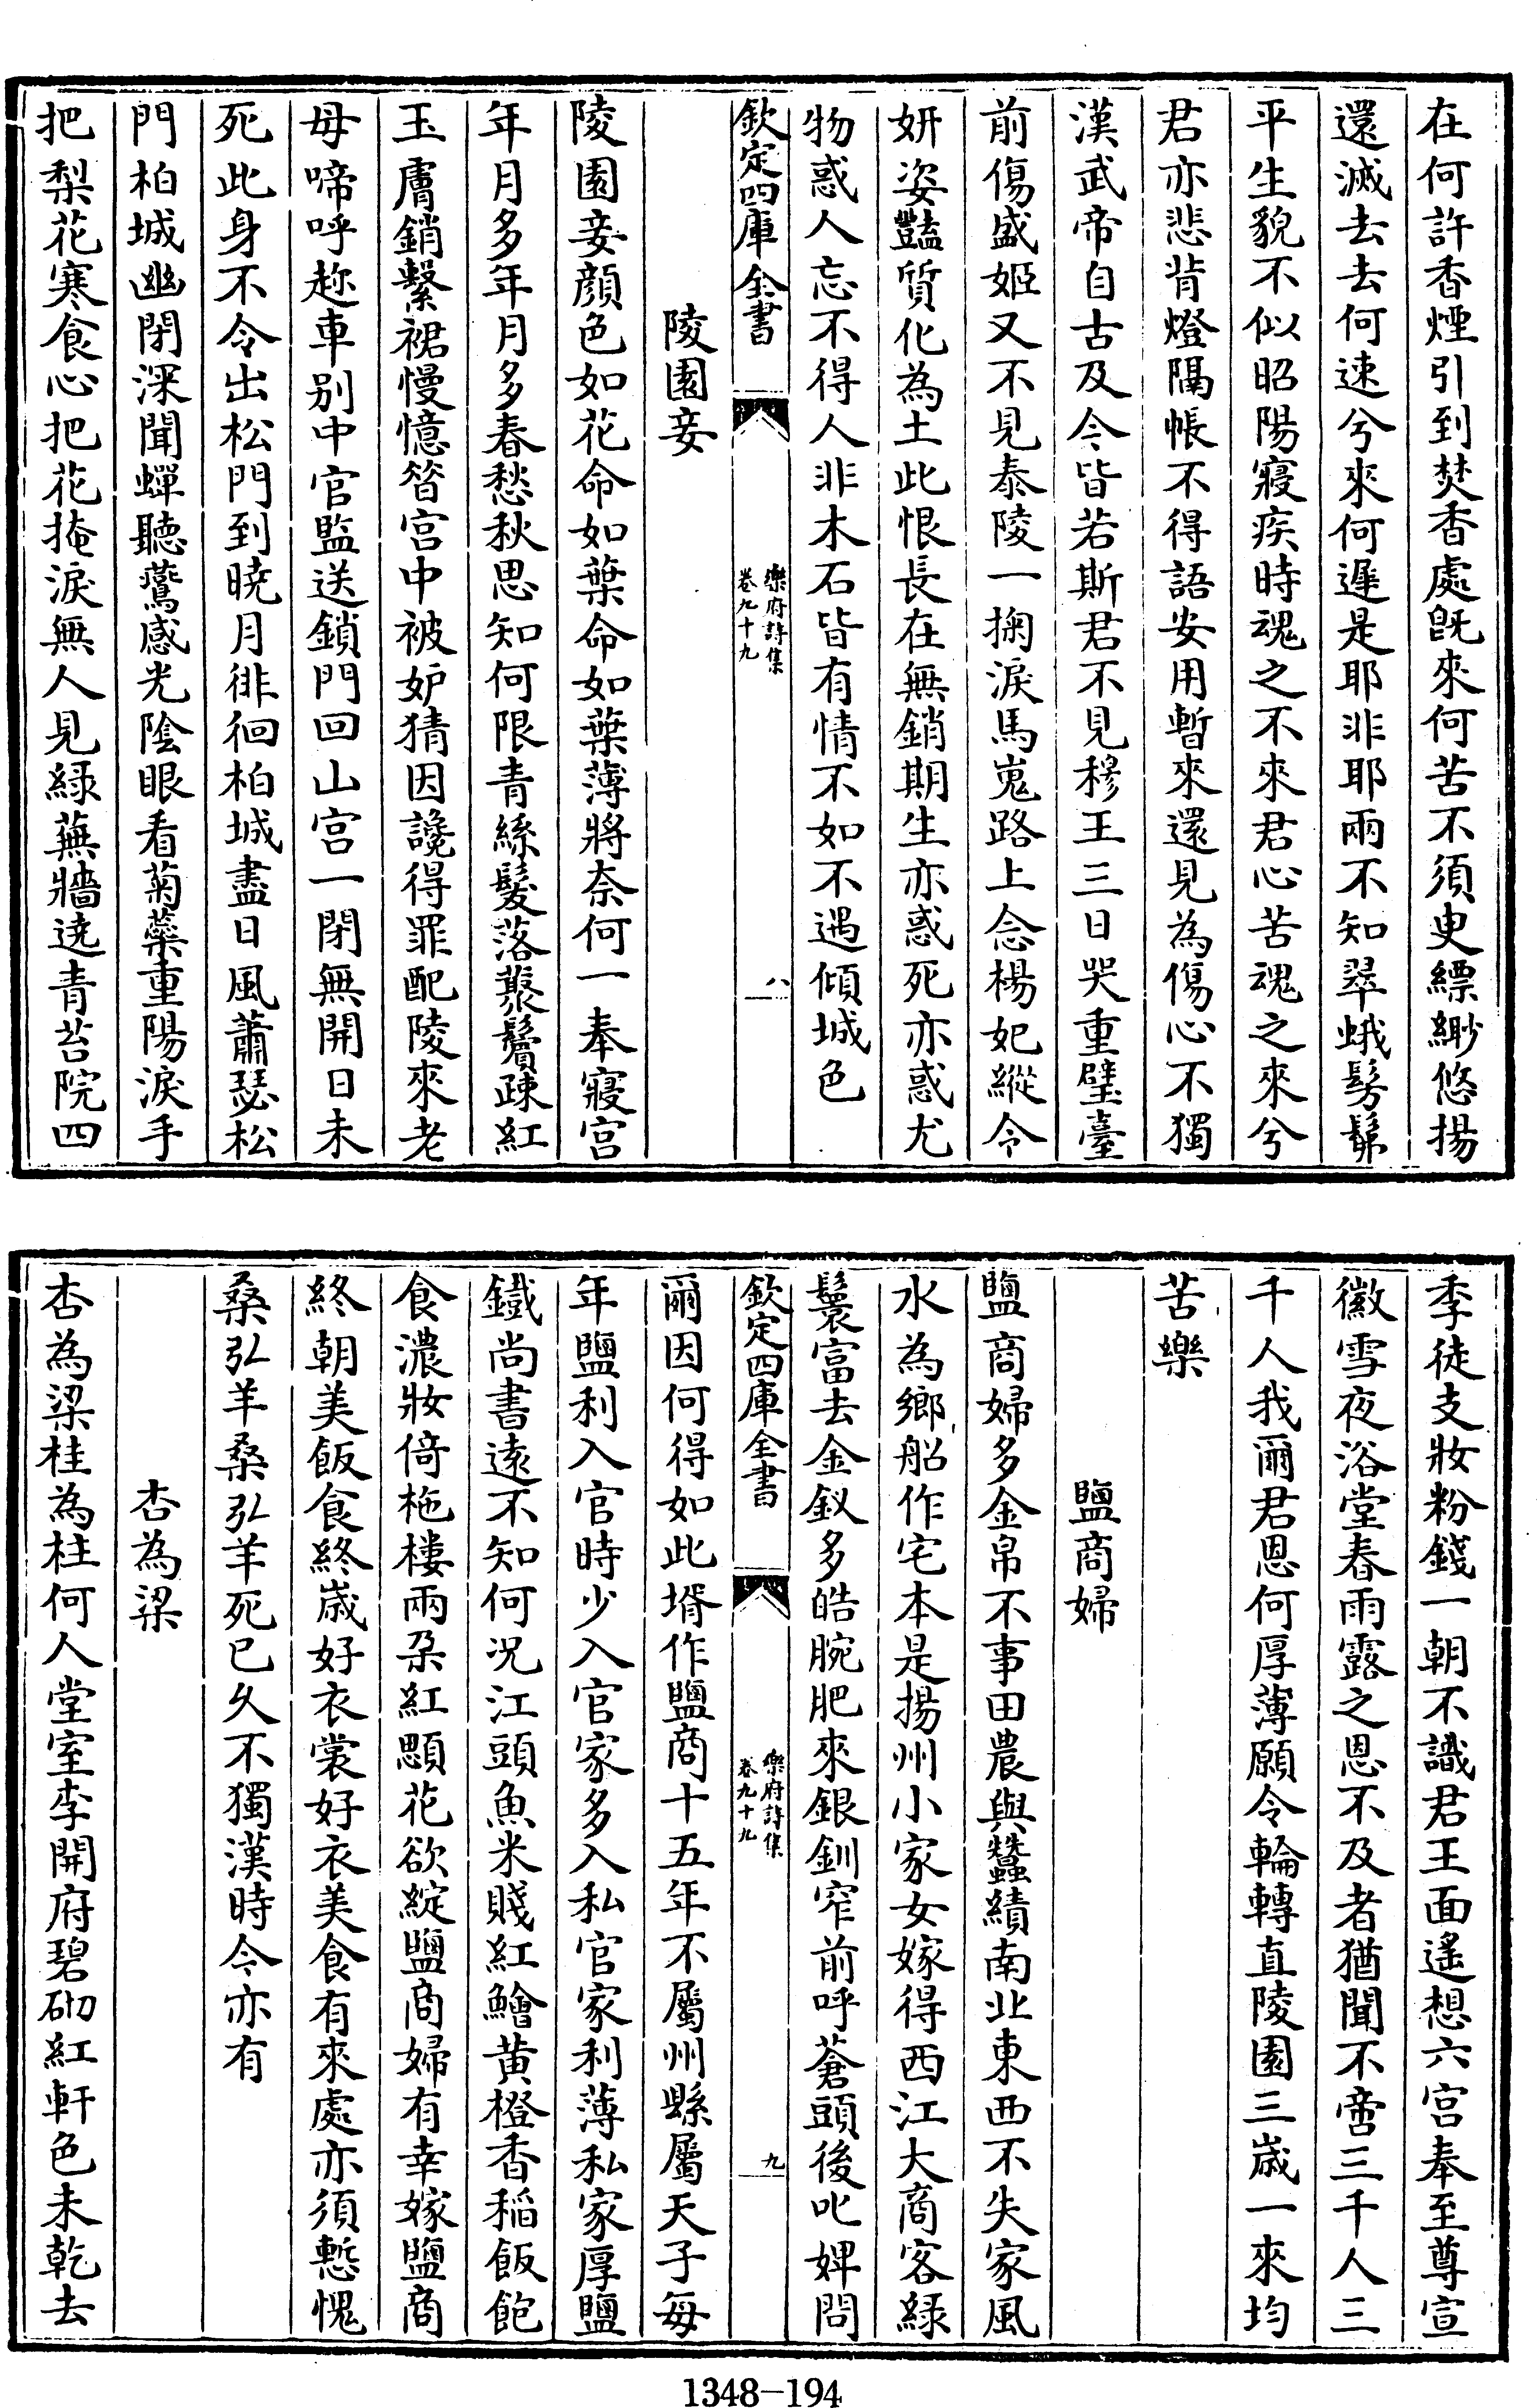 在何許香煙引到焚香處既來何苦不須臾縹緲悠揚
還滅去去何速兮來何遲是耶非耶兩不知翠蛾髣髴
平生貌不似昭陽寢疾時魂之不來君心苦魂之來兮
君亦悲背燈隔帳不得語安用暫來還見為傷心不獨
漢武帝自古及今皆若斯君不見穆王三日哭重璧臺
前傷盛姬又不見泰陵一掬淚馬嵬路上念楊妃縱令
妍姿豔質化為土此恨長在無銷期生亦惑死亦惑尤
物惑人忘不得人非木石皆有情不如不遇傾城色
欽定四庫全書
樂府詩集
卷九十九
八
陵園妾
陵園妾顏色如花命如葉命如葉薄將奈何一奉寢宮
年月多年月多春愁秋思知何限青絲髮落叢鬢疎紅
玉膚銷繫裙慢憶昔宮中被妒猜因讒得罪配陵來老
母啼呼趂車别中官監送鎖門回山宮一閉無開日未
死此身不令出松門到曉月徘徊柏城盡日風蕭瑟松
門柏城幽閉深聞蟬聽鶯感光陰眼看菊蘂重陽淚手
把梨花寒食心把花掩淚無人見緑蕪牆遶青苔院四
季徒支妝粉錢一朝不識君王面遙想六宮奉至尊宣
徽雪夜浴堂春雨露之恩不及者猶聞不啻三千人三
千人我爾君恩何厚薄願令輪轉直陵園三歲一來均
苦樂
鹽商婦
鹽商婦多金帛不事田農與蠶績南北東西不失家風
水為鄉船作宅本是揚州小家女嫁得西江大商客緑
鬟富去金釵多皓腕肥來銀釧窄前呼蒼頭後叱婢問
欽定四庫全書
樂府詩集
卷九十九
九
爾因何得如此壻作鹽商十五年不屬州縣屬天子每
年鹽利入官時少入官家多入私官家利薄私家厚鹽
鐵尚書遠不知何况江頭魚米賤紅鱠黄橙香稻飯飽
食濃妝倚柂樓兩朶紅顋花欲綻鹽商婦有幸嫁鹽商
終朝美飯食終歲好衣裳好衣美食有來處亦須慙愧
桑弘羊桑弘羊死已久不獨漢時今亦有
杏為梁
杏為梁桂為柱何人堂室李開府碧砌紅軒色未乾去
1348-194